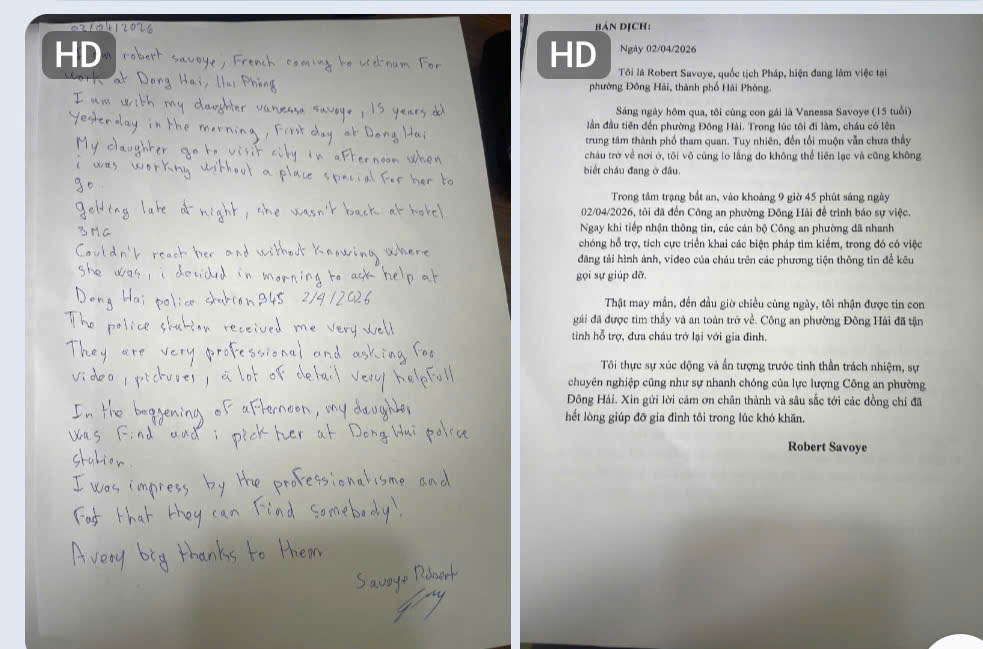 02/04/2026
HD
robert savoye, French coming to vietnam For
work at Dong Hai, Hai Phong
I am with my daughter vanessa savoye, 15 years old
yesterday in the morning, First day at Dong Hai
My daughter go to visit city in afternoon when
i was working without a place special For her to
go.
getting late at night, she wasn't back at hotel
3MG
Couldn't reach her and without knowing where
she was, i decided in morning to ask help at
Dong Hai police station 945 2/4/2026
The police station received me very well
They are very professional and asking For
video, pictures, a lot of detail very helpfull
In the beggening of afternoon, my daughter
was Find and i pick her at Dong Hai police
station.
I was impress by the professionalisme and
Fast that they can Find somebody!
A very big thanks to them
Savoye Robert
BẢN DỊCH:
HD
Ngày 02/04/2026
Tôi là Robert Savoye, quốc tịch Pháp, hiện đang làm việc tại
phường Đông Hải, thành phố Hải Phòng.
Sáng ngày hôm qua, tôi cùng con gái là Vanessa Savoye (15 tuổi)
lần đầu tiên đến phường Đông Hải. Trong lúc tôi đi làm, cháu có lên
trung tâm thành phố tham quan. Tuy nhiên, đến tối muộn vẫn chưa thấy
cháu trở về nơi ở, tôi vô cùng lo lắng do không thể liên lạc và cũng không
biết cháu đang ở đâu.
Trong tâm trạng bất an, vào khoảng 9 giờ 45 phút sáng ngày
02/04/2026, tôi đã đến Công an phường Đông Hải để trình báo sự việc.
Ngay khi tiếp nhận thông tin, các cán bộ Công an phường đã nhanh
chóng hỗ trợ, tích cực triển khai các biện pháp tìm kiếm, trong đó có việc
đăng tải hình ảnh, video của cháu trên các phương tiện thông tin để kêu
gọi sự giúp đỡ.
Thật may mắn, đến đầu giờ chiều cùng ngày, tôi nhận được tin con
gái đã được tìm thấy và an toàn trở về. Công an phường Đông Hải đã tận
tình hỗ trợ, đưa cháu trở lại với gia đình.
Tôi thực sự xúc động và ấn tượng trước tinh thần trách nhiệm, sự
chuyên nghiệp cũng như sự nhanh chóng của lực lượng Công an phường
Đông Hải. Xin gửi lời cảm ơn chân thành và sâu sắc tới các đồng chí đã
hết lòng giúp đỡ gia đình tôi trong lúc khó khăn.
Robert Savoye